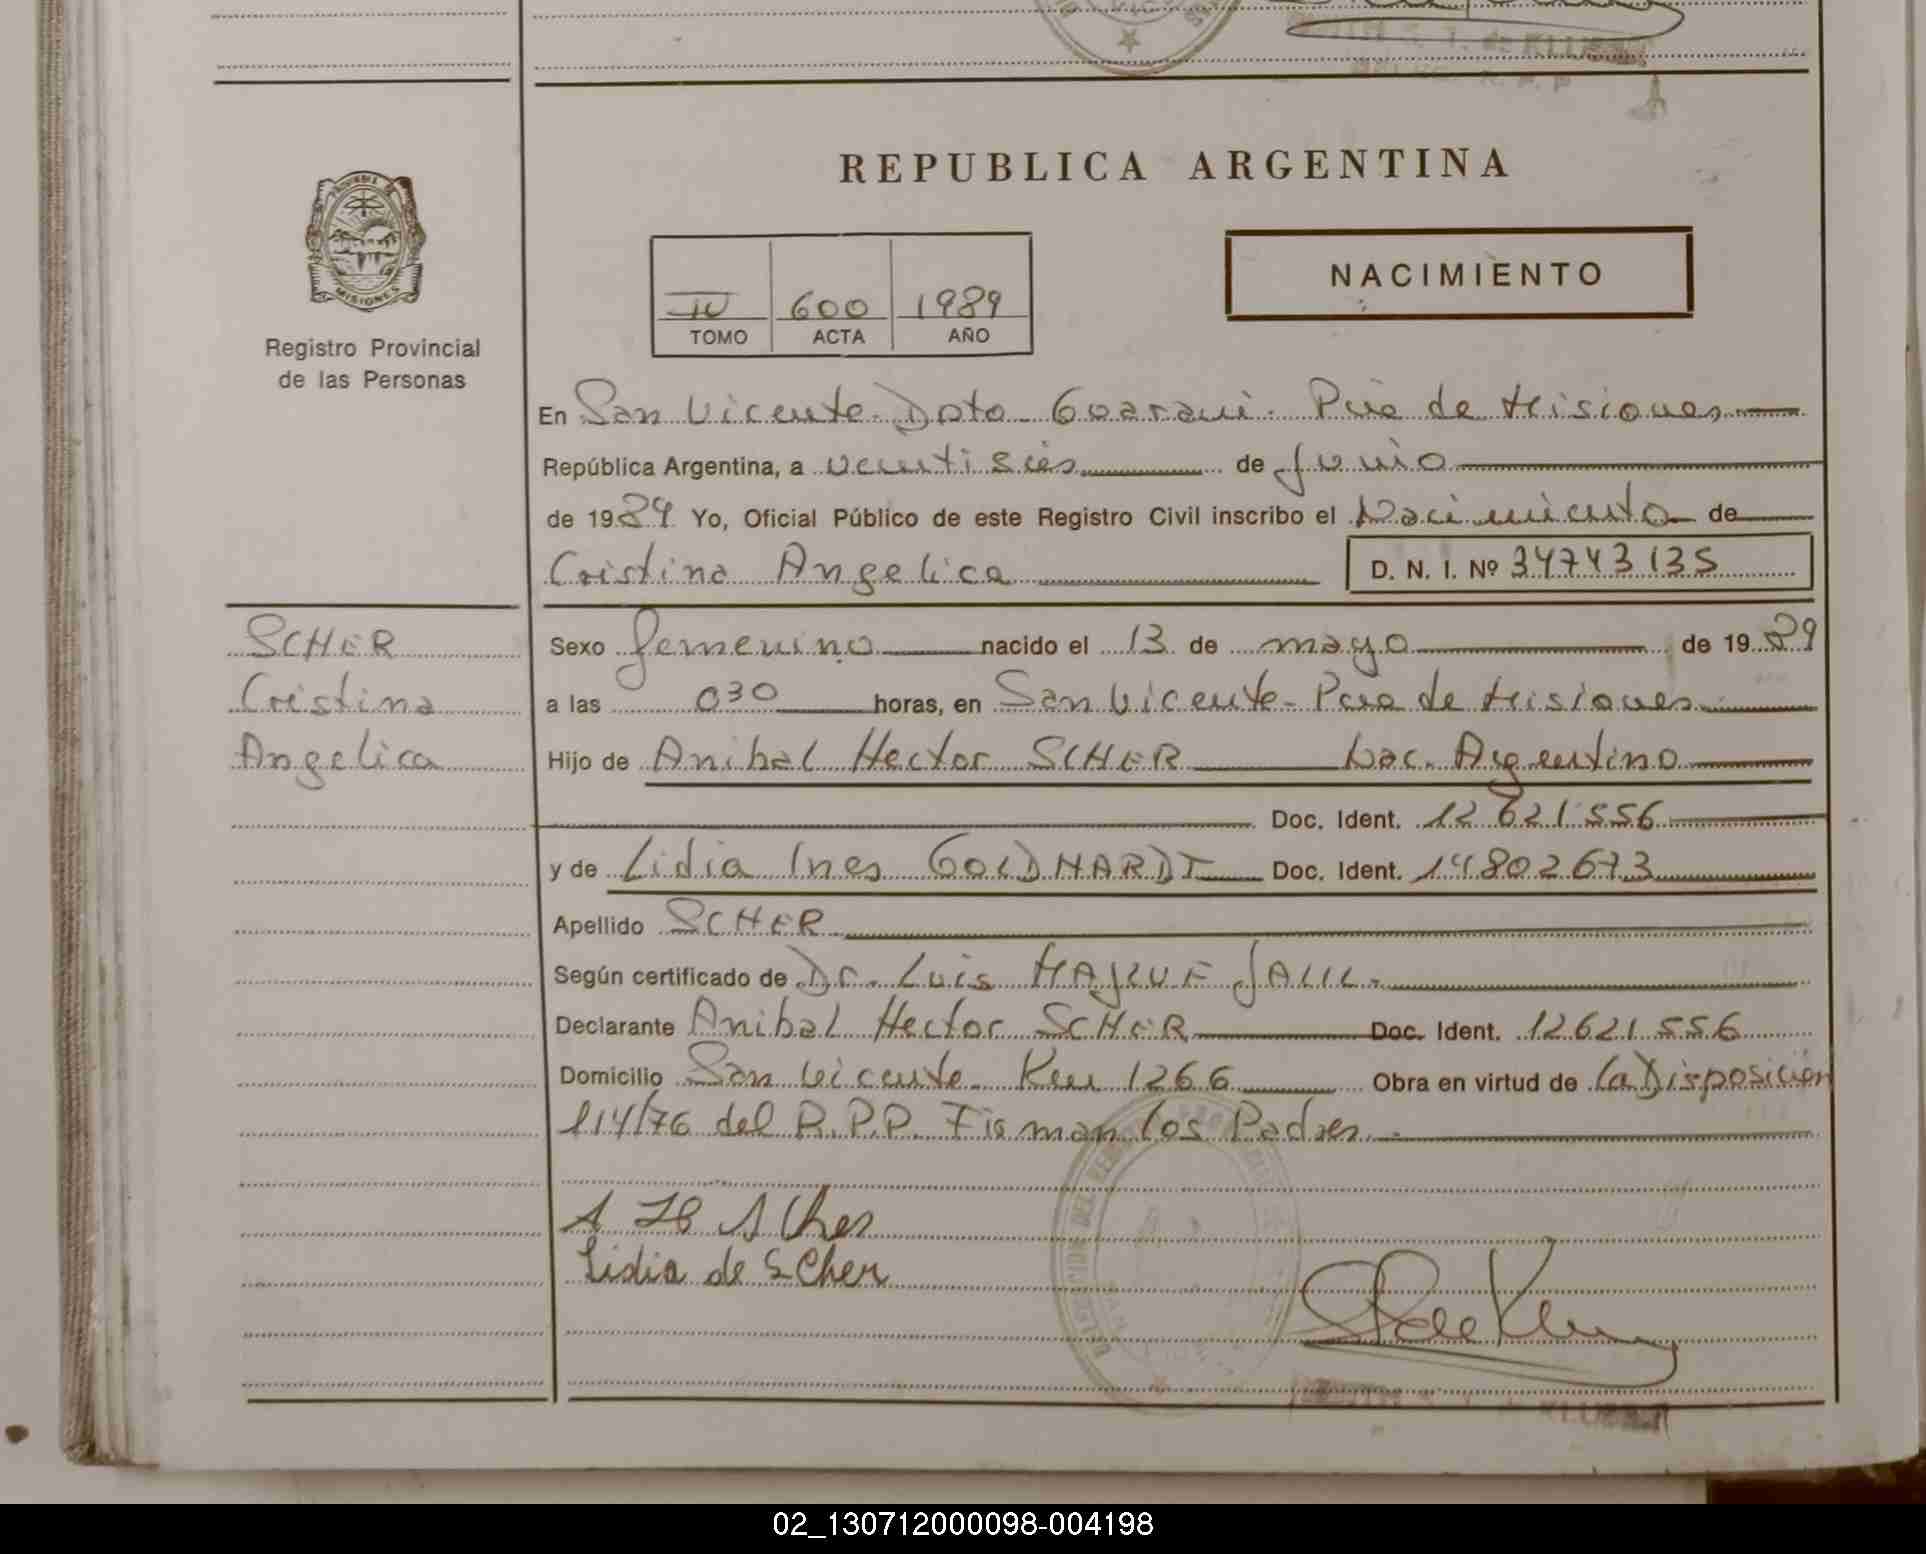 REPUBLICA ARGENTINA
NACIMIENTO
MISIONES
Registro Provincial
de las Personas
IV 600 1989
TOMO ACTA AÑO
En San Vicente - Dpto Guarani - Pcia de Misiones
República Argentina, a veintiseis de Junio
de 1989 Yo, Oficial Público de este Registro Civil inscribo el Nacimiento de
Cristina Angelica D. N. I. Nº 34743135
SCHER
Cristina
Angelica
Sexo femenino nacido el 13 de mayo de 1989
a las 030 horas, en San Vicente - Pcia de Misiones
Hijo de Anibal Hector SCHER Nac. Argentino
Doc. Ident. 12 621 556
y de Lidia Ines GOLDHARDT Doc. Ident. 14802673
Apellido SCHER
Según certificado de Dr. Luis JALIL.
Declarante Anibal Hector SCHER Doc. Ident. 12621556
Domicilio San Vicente - Km 1266 Obra en virtud de la Disposición
114/76 del R.P.P. Firman los Padres.
A H SCher
Lidia de SCher
02_130712000098-004198